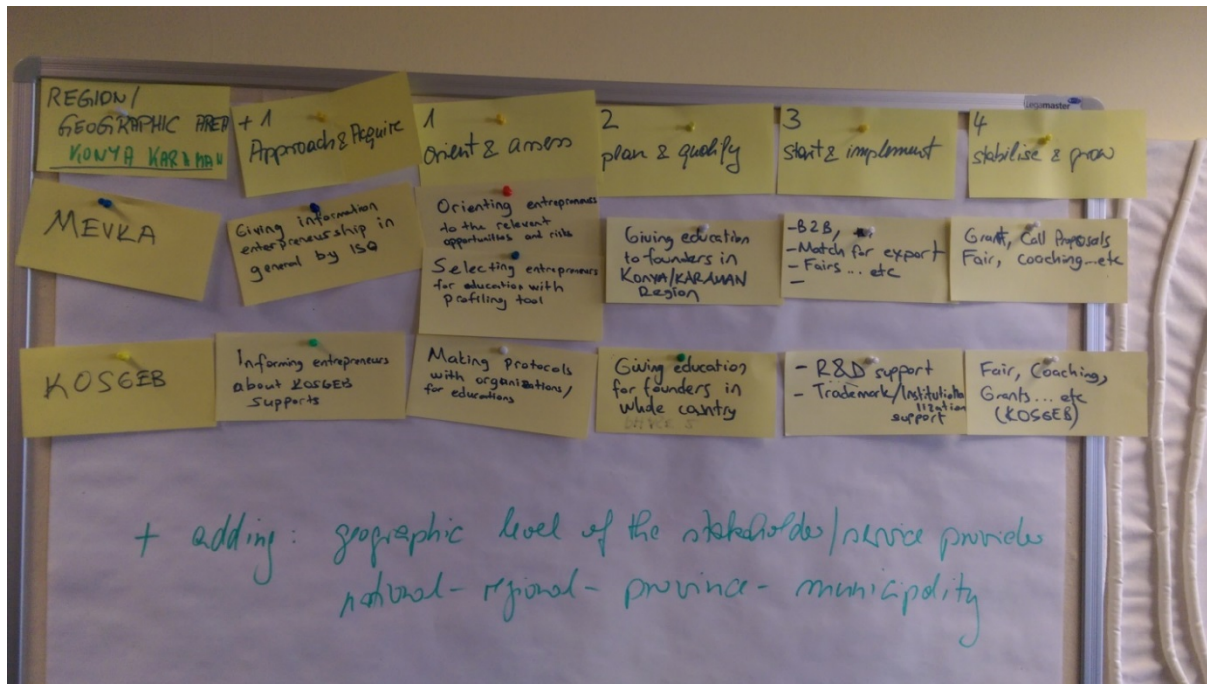 REGION/
GEOGRAPHIC AREA
KONYA KARAMAN
+1
Approach & Acquire
1
orient & assess
2
plan & qualify
3
start & implement
4
stabilise & grow
Legamaster
MEVKA
Giving information
enterpreneurship in
general by ISQ
Orienting entrepreneurs
to the relevant
opportunities and risks
Selecting entrepreneurs
for education with
profiling tool
Giving education
to founders in
KONYA/KARAMAN
Region
-B2B,
-Match for export
- Fairs ... etc
-
Grant, Call Proposals
Fair, coaching...etc
KOSGEB
Informing entrepreneurs
about KOSGEB
supports
Making Protocols
with organizations/
for educations
Giving education
for founders in
whole country
- R&D support
- Trademark/Institutiona
llization
support
Fair, Coaching,
Grants... etc
(KOSGEB)
+ adding: geographic level of the stakeholder/service provider
national - regional - province - municipality